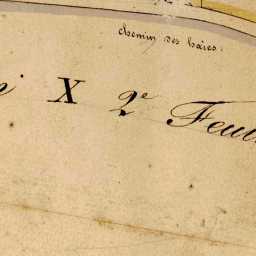 chemin des haies.
X 2e Feui